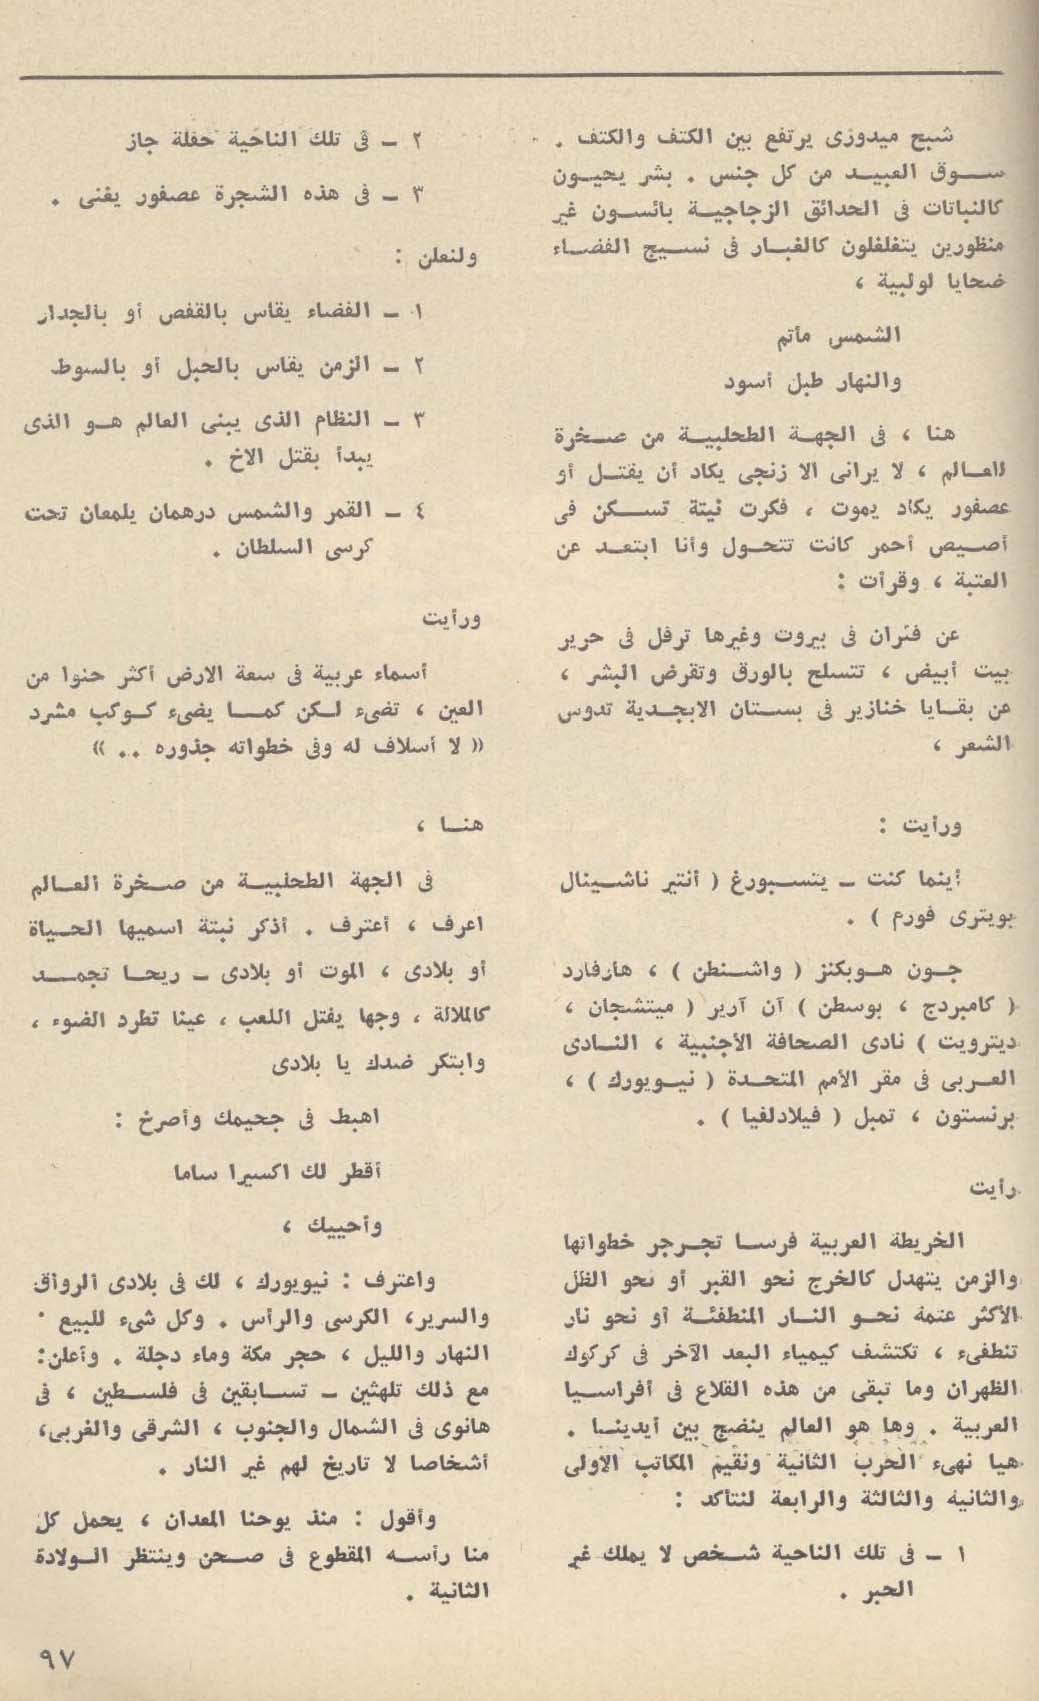 شبح ميدوزى يرتفع بين الكتف والكتف .
ســوق العبيــد من كل جنس . بشر يحيــون
كالنباتات فى الحدائق الزجاجيــة بائســون غير
منظورين يتغلغلون كالغبــار فى نســيج الفضــاء
ضحايا لولبية ،
الشمس مأتم
والنهار طبل أسود
هنا ، فى الجهــة الطحلبيــة من صــخرة
العــالم ، لا يرانى الا زنجى يكاد أن يقتــل أو
عصفور يكاد يموت ، فكرت نبتة تســكن فى
أصــيص أحمر كانت تتحــول وأنا ابتعــد عن
العتبة ، وقرأت :
عن فئران فى بيروت وغيرها ترفل فى حرير
بيت أبيض ، تتسلح بالورق وتقرض البشر ،
عن بقــايا خنازير فى بســتان الابجــدية تدوس
الشعر ،
ورأيت :
أينما كنت ــ يتســبورغ ( أنتير ناشــينال
بويترى فورم ) .
جــون هــوبكنز ( واشــنطن ) ، هارفارد
( كامبردج ، بوسطن ) آن آربر ( ميتشجان ،
ديترويت ) نادى الصحافة الأجنبية ، النــادى
العــربى فى مقر الأمم المتحــدة ( نيــويورك ) ،
برنستون ، تمبل ( فيلادلفيا ) .
رأيت
الخريطة العربية فرســا تجــرجر خطواتها
والزمن يتهدل كالخرج نحو القبر أو نحو الظل
الأكثر عتمة نحــو النــار المنطفئــة أو نحو نار
تنطفىء ، تكتشف كيمياء البعد الآخر فى كركوك
الظهران وما تبقى من هذه القلاع فى أفراســيا
العربية . وها هو العالم ينضج بين أيدينــا .
هيا نهىء الحرب الثانية ونقيم المكاتب الأولى
والثانية والثالثة والرابعة لنتأكد :
١ ــ فى تلك الناحية شــخص لا يملك غير
الحبر .
٢ ــ فى تلك الناحية حفلة جاز
٣ ــ فى هذه الشجرة عصفور يغنى .
ولنعلن :
١ ــ الفضاء يقاس بالقفص أو بالجدار
٢ ــ الزمن يقاس بالحبل أو بالسوط
٣ ــ النظام الذى يبنى العالم هــو الذى
يبدأ بقتل الاخ .
٤ ــ القمر والشمس درهمان يلمعان تحت
كرسى السلطان .
ورأيت
أسماء عربية فى سعة الارض أكثر حنوا من
العين ، تضىء لــكن كمــا يضىء كــوكب مشرد
« لا أسلاف له وفى خطواته جذوره .. »
هنــا ،
فى الجهة الطحلبيــة من صــخرة العــالم
اعرف ، أعترف . أذكر نبتة اسميها الحــياة
أو بلادى ، الموت أو بلادى ــ ريحــا تجمــد
كالملالة ، وجها يقتل اللعب ، عينا تطرد الضوء ،
وابتكر ضدك يا بلادى
اهبط فى جحيمك وأصرخ :
أقطر لك اكسيرا ساما
وأحييك ،
واعترف : نيويورك ، لك فى بلادى الرواق
والسرير، الكرسى والرأس . وكل شىء للبيع .
النهار والليل ، حجر مكة وماء دجلة . وأعلن:
مع ذلك تلهثين ــ تســابقين فى فلســطين ، فى
هانوى فى الشمال والجنوب ، الشرقى والغربى،
أشخاصا لا تاريخ لهم غير النار .
وأقول : منذ يوحنا المعدان ، يحمل كل
منا رأســه المقطوع فى صــحن وينتظر الــولادة
الثانية .
٩٧